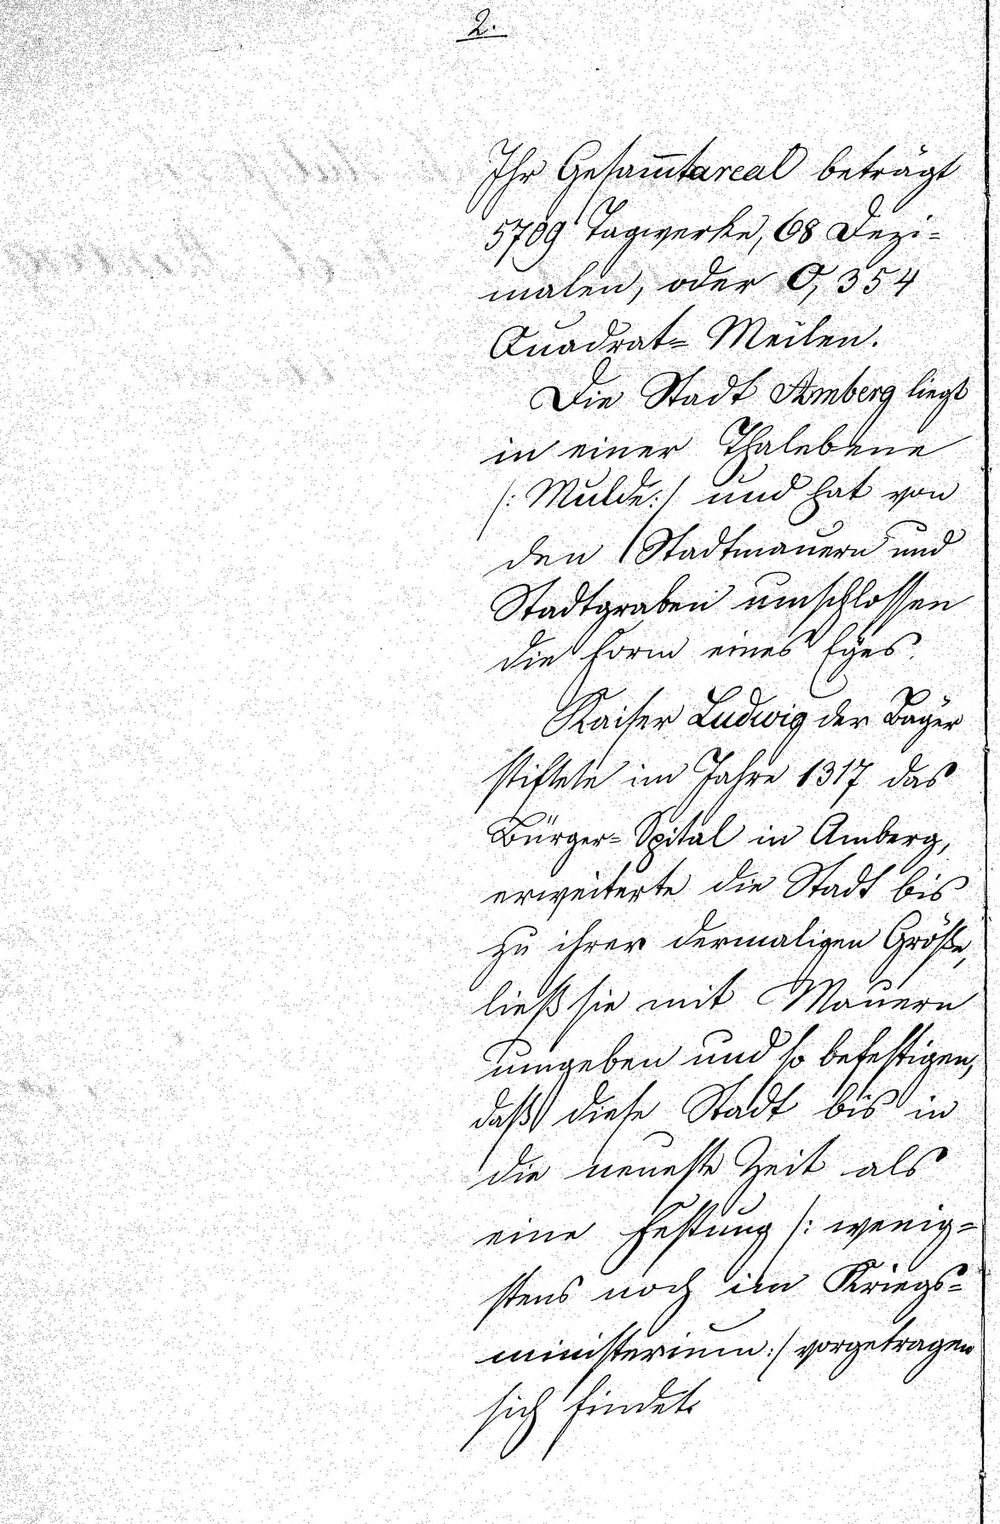 2.
Ihr Gesam̅tareal beträgt
5709 Tagwerke, 68 Dezi=
malen, oder 0,354
Quadrat= Meilen.
Die Stadt Amberg liegt
in einer Thalebene
/: Mulde :/ und hat von
den Stadtmauern und
Stadtgraben umschlossen
die Form eines Eÿes.
Kaiser Ludwig der Bayer
stiftete im Jahre 1317 das
Bürger= Spital in Amberg,
erweiterte die Stadt bis
zu ihrer dermaligen Größe,
ließ sie mit Mauern
umgeben und so befestigen,
daß diese Stadt bis in
die neueste Zeit als
eine Festung /: wenig=
stens noch im Kriegs=
ministerium :/ vorgetragen
sich findet.